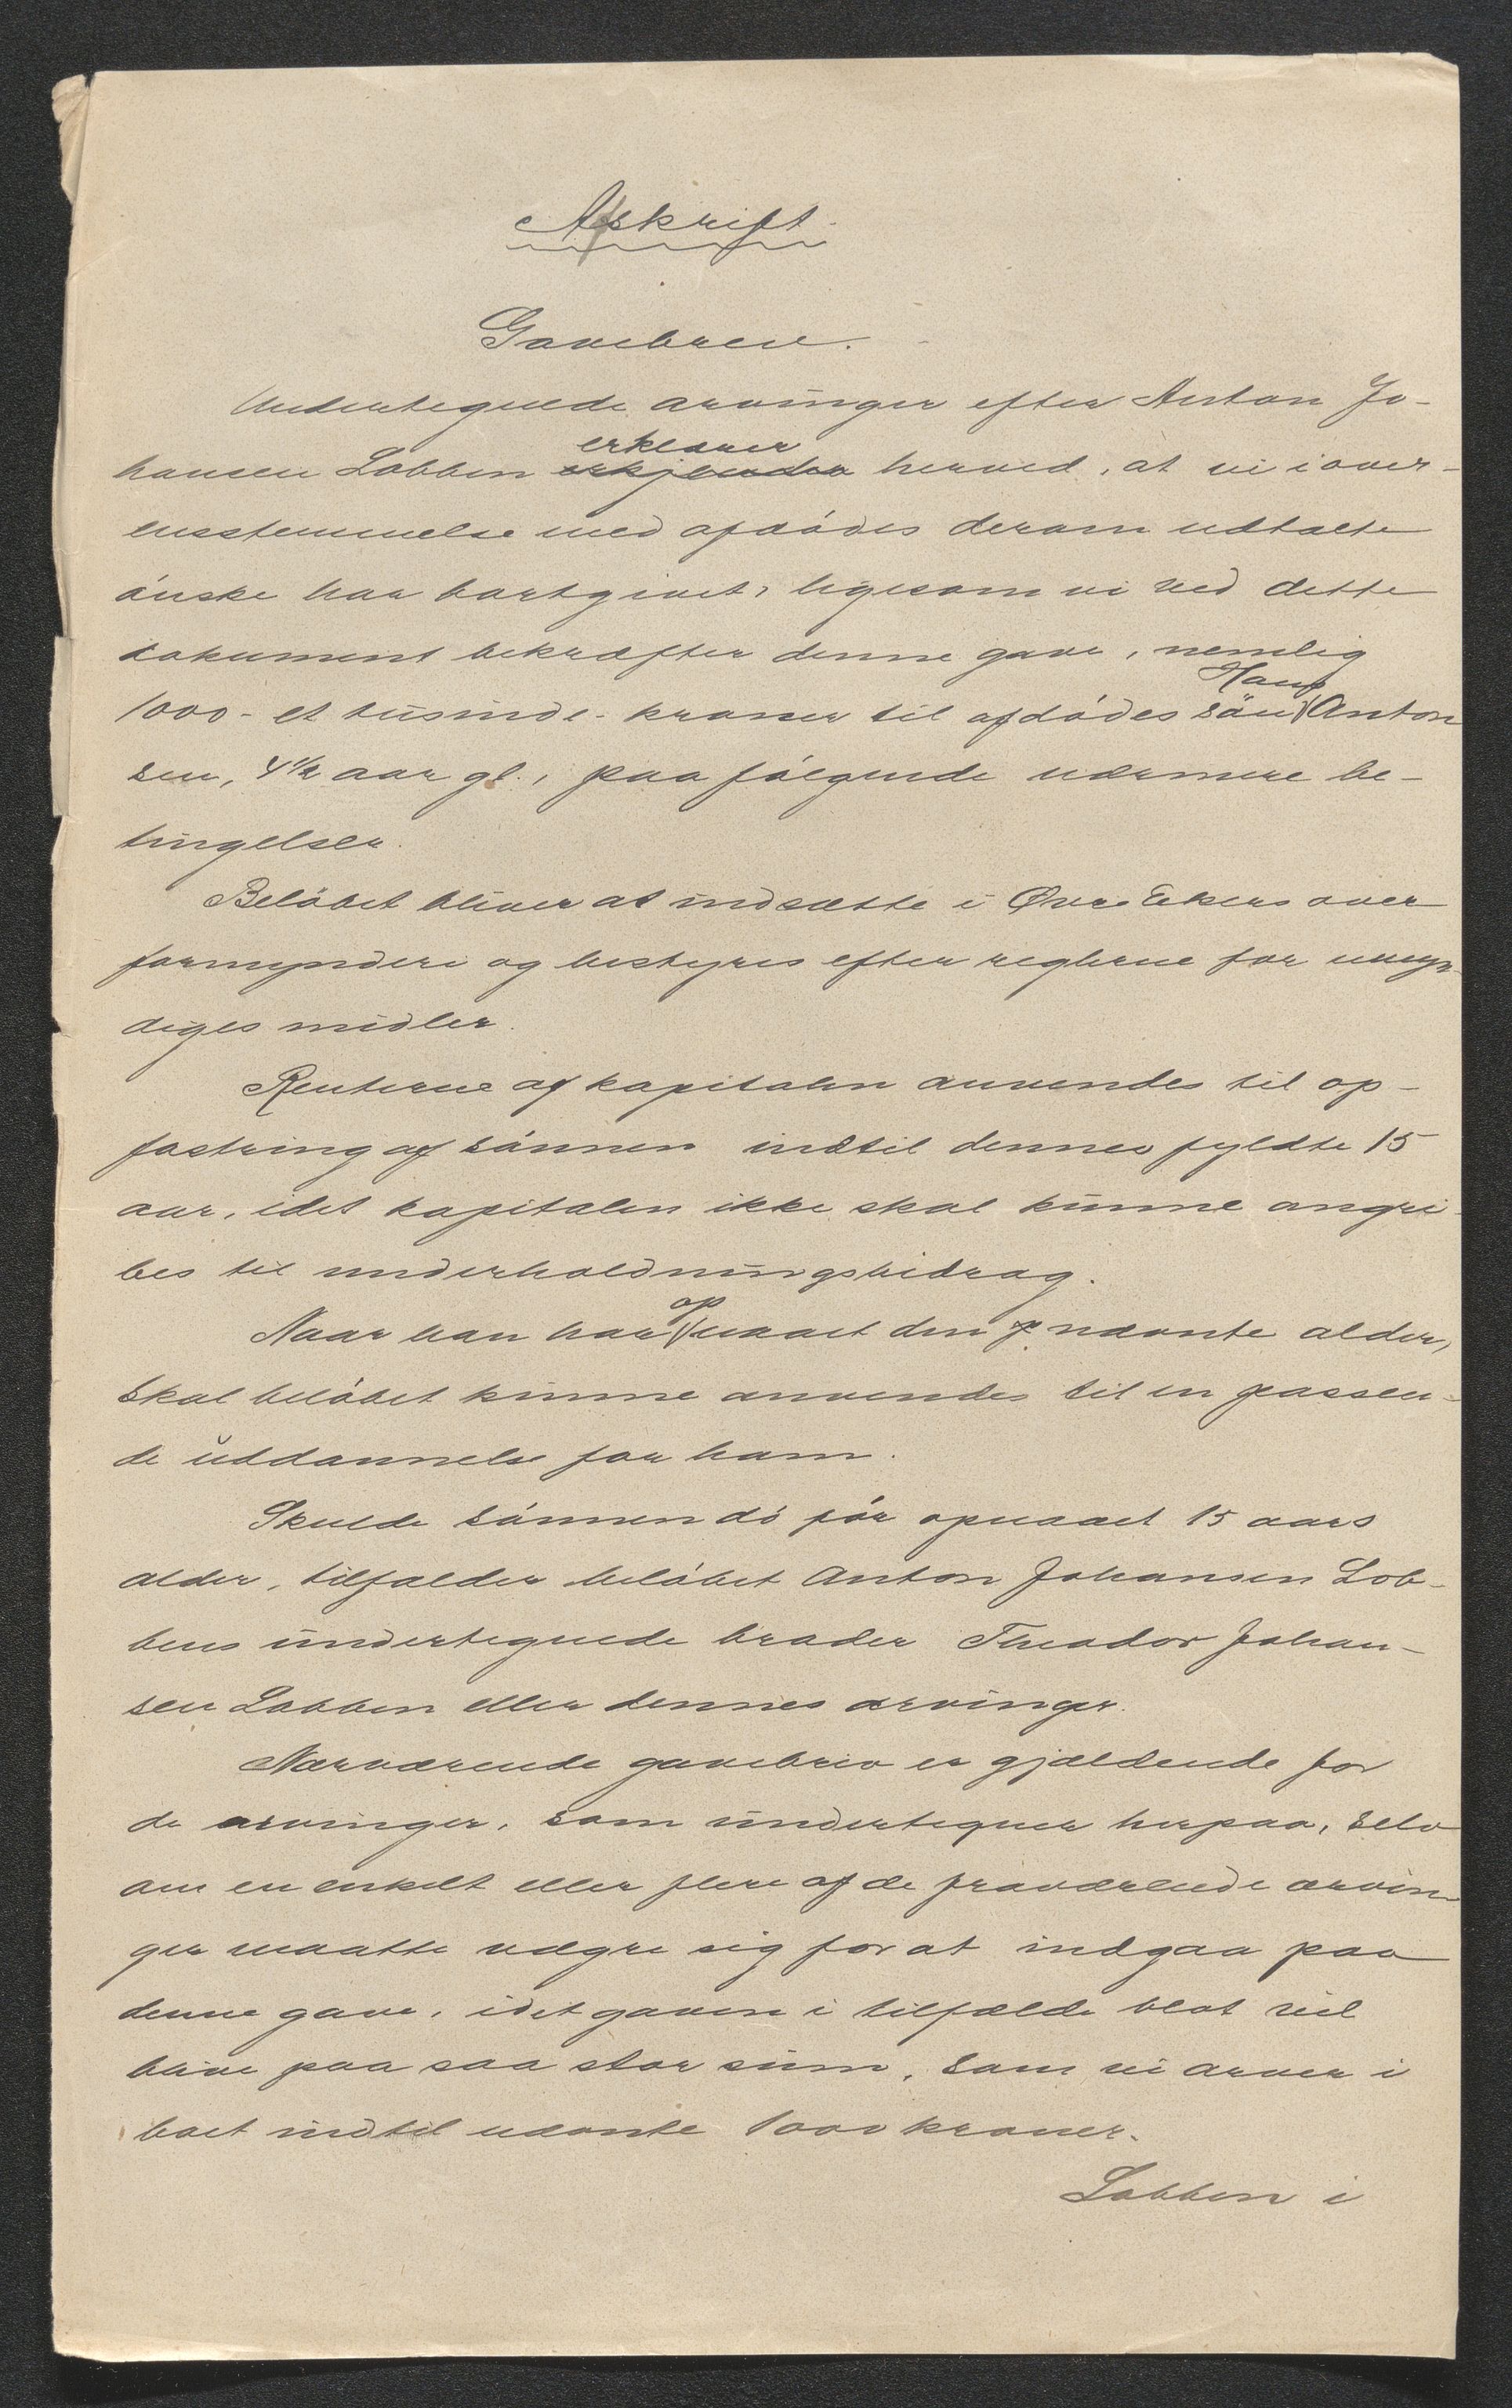 Afskrift.
Gavebrev.
Undertegnede arvinger efter Anton Jo-
hansen Lobben erkjender erklærer herved, at vi i over-
ensstemmelse med afdødes derom udtalte
ønske har bortgivet, ligesom vi ved dette
dokument bekræfter denne gave, nemlig
1000 - et tusinde - kroner til afdødes søn Hans Anton
sen, 4 1/2 aar gl., paa følgende nærmere be-
tingelser.
Beløbet bliver at indsætte i Øvre Ekers over
formynderi og bestyres efter reglerne for umyn-
diges midler.
Renterne af kapitalen anvendes til op-
fostring af sønnen indtil dennes fyldte 15
aar, idet kapitalen ikke skal kunne angri-
bes til underholdningsbidrag.
Naar han har opnaaet den nævnte alder,
skal beløbet kunne anvendes til en passen-
de uddannelse for ham.
Skulde sønnen dø før opnaaet 15 aars
alder, tilfalder beløbet Anton Johansen Lob-
bens undertegnede broder Theodor Johan-
sen Lobben eller dennes arvinger.
Nærværende gavebrev er gjældende for
de arvinger, som undertegner herpaa, selv
om en enkelt eller flere af de fraværende arvin-
ger maatte vægre sig for at indgaa paa
denne gave, idet gaven i tilfælde blot vil
blive paa saa stor sum, som vi arver i
boet indtil nævnte 1000 kroner.
Lobben i